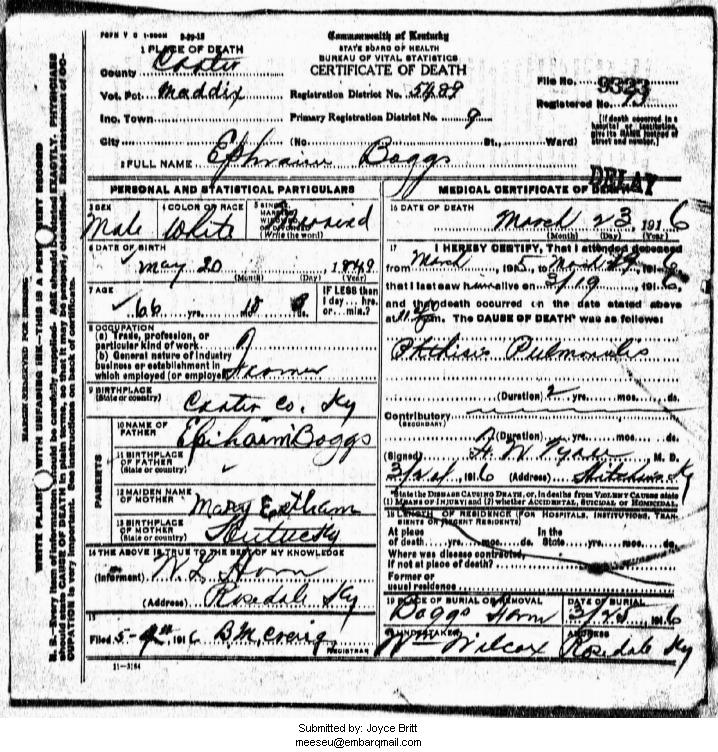 FORM V 0 1-500M 9-29-15
Commonwealth of Kentucky
STATE BOARD OF HEALTH
BUREAU OF VITAL STATISTICS
CERTIFICATE OF DEATH
1 PLACE OF DEATH
County Carter
Vot. Pct. Maddix
Inc. Town
City
Registration District No. 5489
Primary Registration District No. 9
(No. St., Ward)
File No. 9323
Registered No. 73
(If death occurred in a hospital or institution, give its NAME instead of street and number.)
2 FULL NAME Ephraim Boggs
DELAY
PERSONAL AND STATISTICAL PARTICULARS
3 SEX Male
4 COLOR OR RACE White
5 SINGLE, MARRIED, WIDOWED OR DIVORCED (Write the word)
6 DATE OF BIRTH
May 20 1849
(Month) (Day) (Year)
7 AGE
66 yrs. mos. ds.
IF LESS than 1 day... hrs. or... min.?
8 OCCUPATION
(a) Trade, profession, or particular kind of work
(b) General nature of industry business or establishment in which employed (or employer) Farmer
9 BIRTHPLACE
(State or country) Carter Co. Ky
PARENTS
10 NAME OF FATHER Boggs
11 BIRTHPLACE OF FATHER (State or country)
12 MAIDEN NAME OF MOTHER Mary
13 BIRTHPLACE OF MOTHER (State or country) Kentucky
14 THE ABOVE IS TRUE TO THE BEST OF MY KNOWLEDGE
(Informant) W. L. Horn
(Address) Rosedale Ky
15
Filed 5- 1916 B.M. REGISTRAR
11-3184
MEDICAL CERTIFICATE OF DEATH
16 DATE OF DEATH
March 23 1916
(Month) (Day) (Year)
17 I HEREBY CERTIFY, That I attended deceased
from March 5, 191 to March 1916
that I last saw him alive on 3/19, 1916,
and that death occurred on the date stated above
at m. The CAUSE OF DEATH* was as follows:
Phthisis Pulmonalis
(Duration) 2 yrs. mos. ds.
Contributory
(SECONDARY)
(Duration) yrs. mos. ds.
(Signed) H. W. M. D.
1916 (Address) Hitchins Ky
*State the DISEASE CAUSING DEATH, or, in deaths from VIOLENT CAUSES state
(1) MEANS OF INJURY; and (2) whether ACCIDENTAL, SUICIDAL or HOMICIDAL.
18 LENGTH OF RESIDENCE (FOR HOSPITALS, INSTITUTIONS, TRANSIENTS OR RECENT RESIDENTS)
At place of death yrs. mos. ds. In the State yrs. mos. ds.
Where was disease contracted, if not at place of death?
Former or usual residence
19 PLACE OF BURIAL OR REMOVAL Boggs Farm
DATE OF BURIAL 3/25, 1916
20 UNDERTAKER Wm Wilcox
ADDRESS Rosedale Ky
MARGIN RESERVED FOR BINDING
WRITE PLAINLY WITH UNFADING INK—THIS IS A PERMANENT RECORD
N. B.—Every item of information should be carefully supplied. AGE should be stated EXACTLY. PHYSICIANS
should state CAUSE OF DEATH in plain terms, so that it may be properly classified. Exact statement of OC-
CUPATION is very important. See instructions on back of certificate.
Submitted by: Joyce Britt
meeseu@embarqmail.com